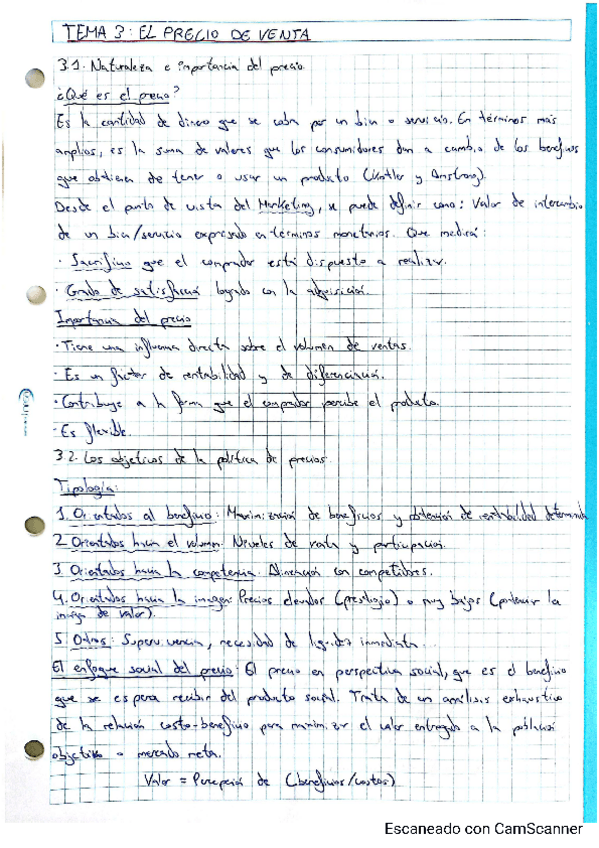 TEMA 3: EL PRECIO DE VENTA
3.1. Naturaleza e importancia del precio.
¿Qué es el precio?
Es la cantidad de dinero que se cobra por un bien o servicio. En términos más
amplios, es la suma de valores que los consumidores dan a cambio de los beneficios
que obtienen de tener o usar un producto (Kotler y Amstrong).
Desde el punto de vista del Marketing, se puede definir como: Valor de intercambio
de un bien/servicio expresado en términos monetarios. Que medirá:
· Sacrificio que el comprador está dispuesto a realizar.
· Grado de satisfacción logrado con la adquisición.
Importancia del precio
· Tiene una influencia directa sobre el volumen de ventas.
· Es un factor de rentabilidad y de diferenciación.
· Contribuye a la forma que el comprador percibe el producto.
· Es flexible.
3.2. Los objetivos de la política de precios.
Tipología:
1. Orientados al beneficio: Maximización de beneficios y obtención de rentabilidad determinada
2. Orientados hacia el volumen: Niveles de venta y participación.
3. Orientados hacia la competencia: Alineación con competidores.
4. Orientados hacia la imagen: Precios elevados (prestigio) o muy bajos (potenciar la
imagen de valor).
5. Otros: Supervivencia, necesidad de liquidez inmediata...
El enfoque social del precio: El precio en perspectiva social, que es el beneficio
que se espera recibir del producto social. Trata de un análisis exhaustivo
de la relación costo-beneficio para maximizar el valor entregado a la población
objetivo o mercado meta.
Valor = Percepción de (beneficios/costos)
Escaneado con CamScanner